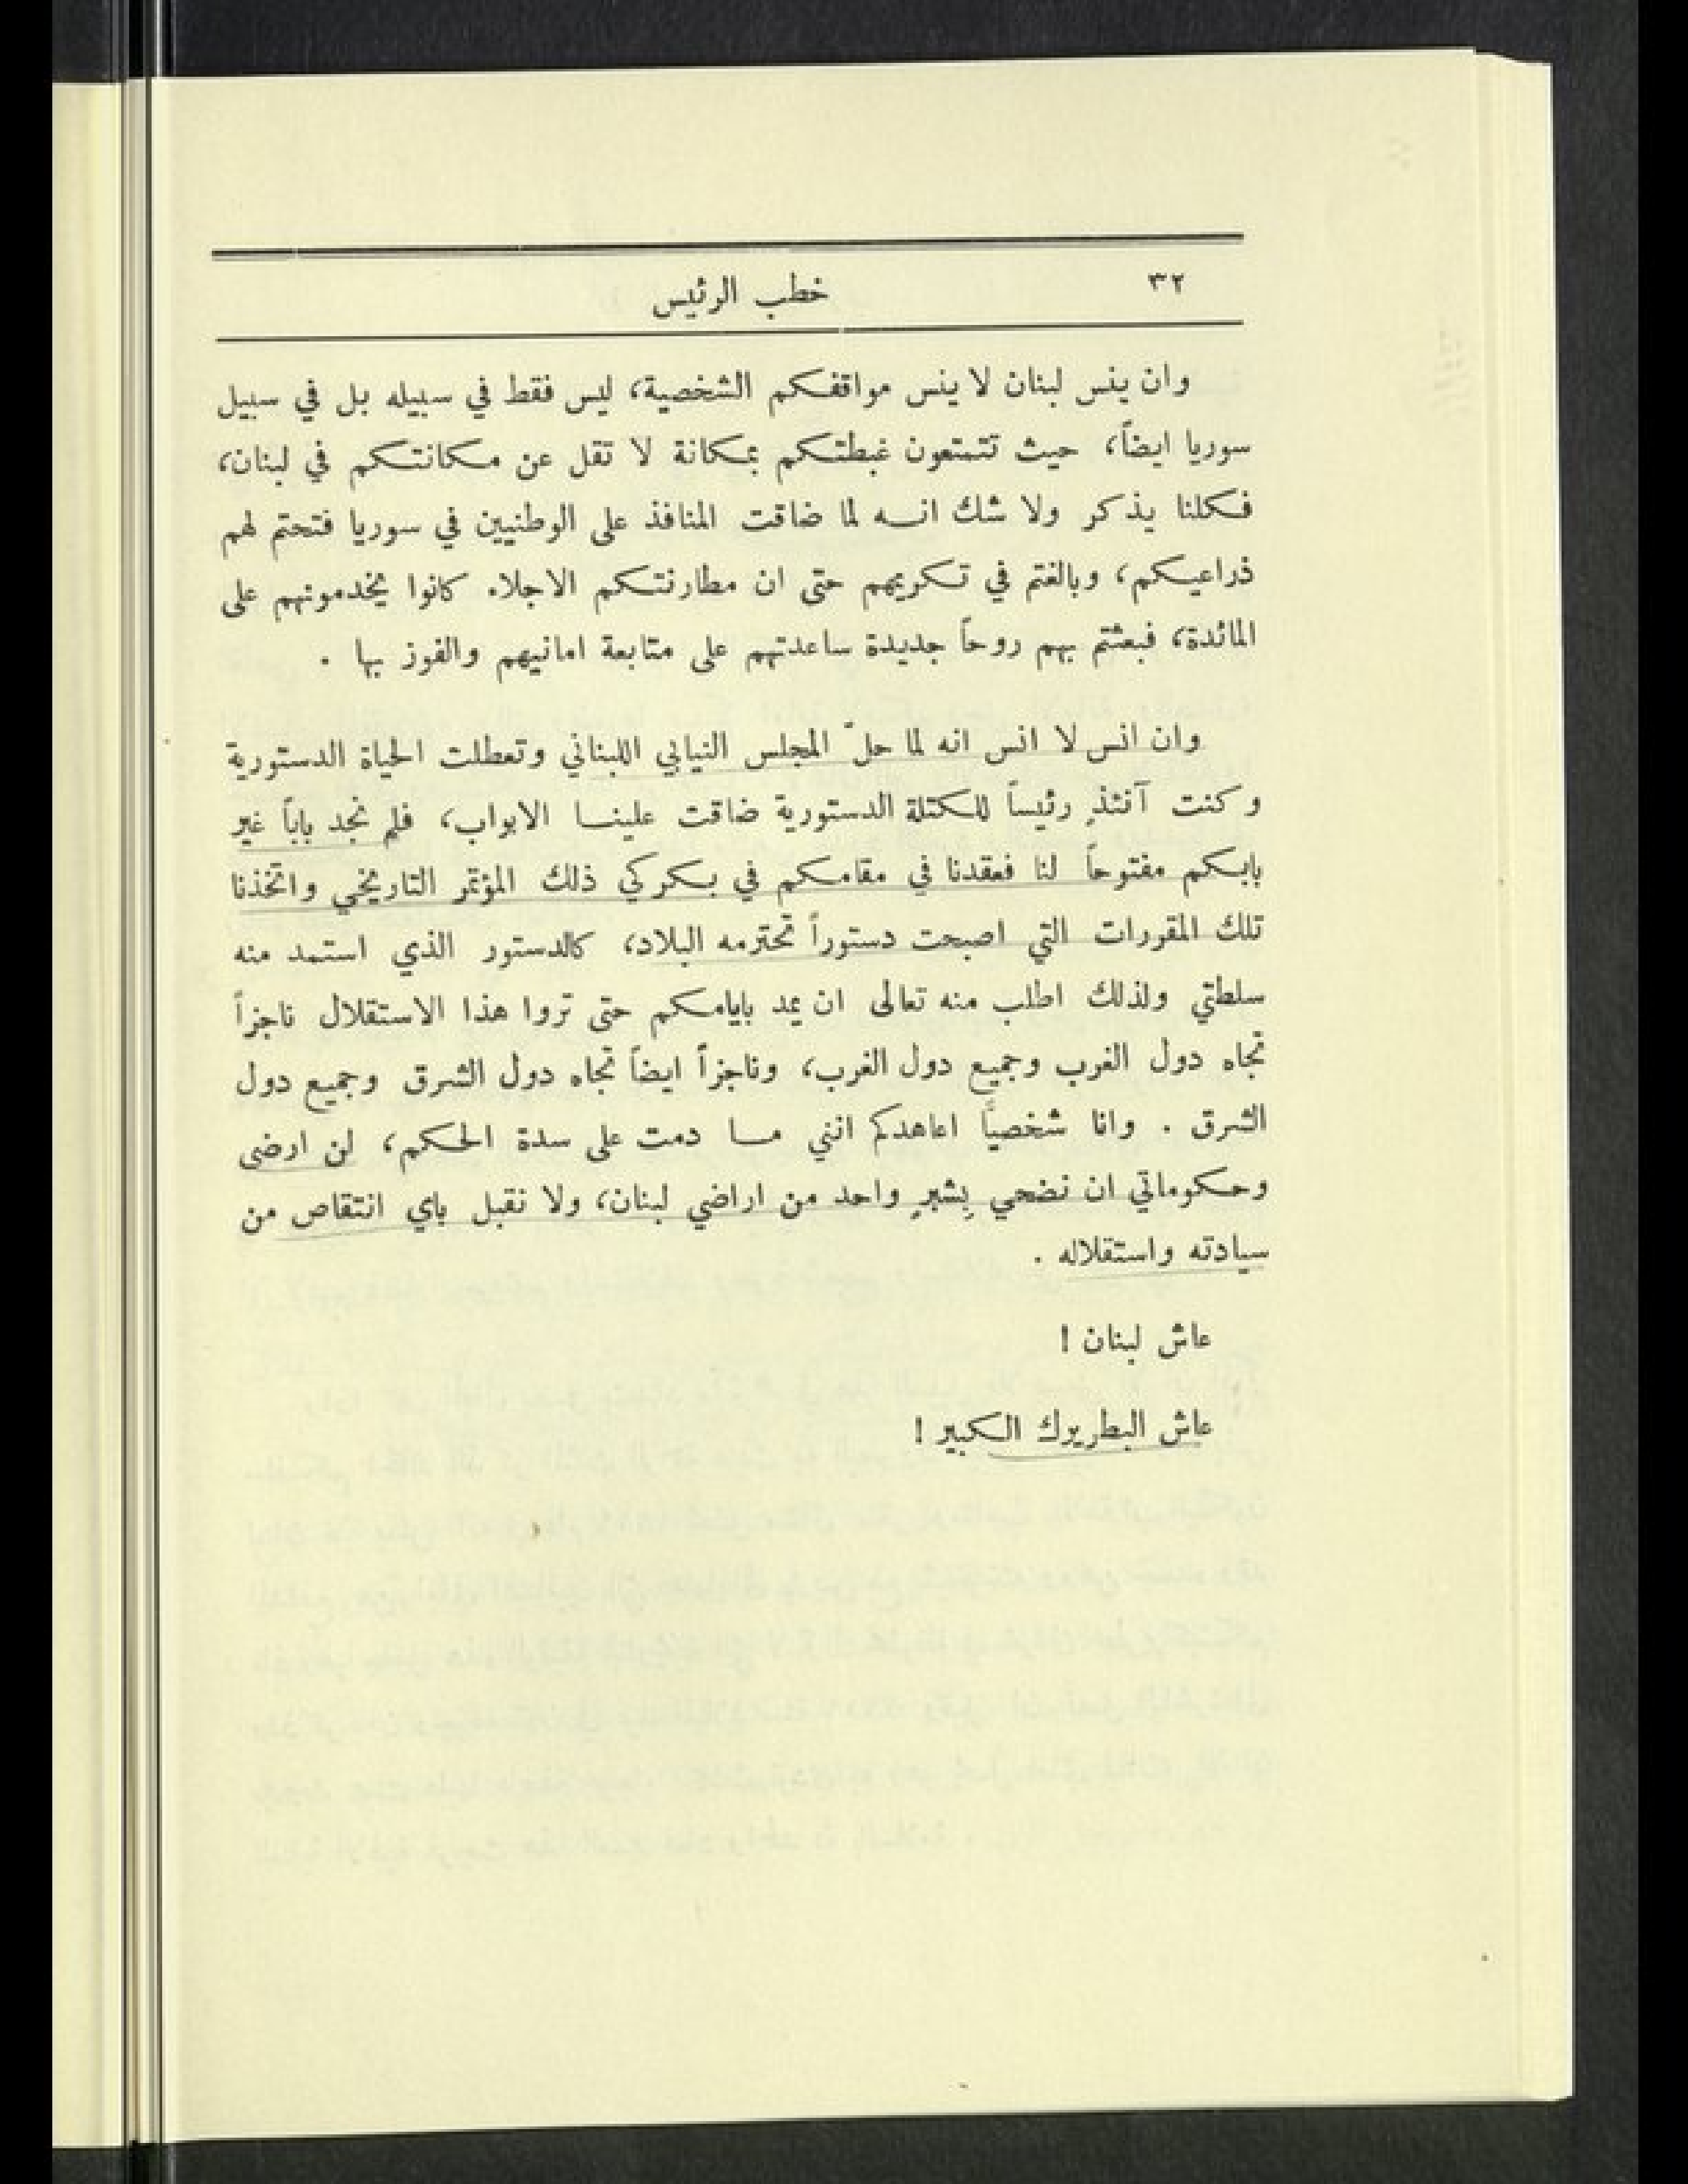 ٣٢
خطب الرئيس
وان ينس لبنان لا ينس مواقفكم الشخصية، ليس فقط في سبيله بل في سبيل
سوريا ايضاً، حيث تتمتعون غبطتكم بمكانة لا تقل عن مكانتكم في لبنان،
فكلنا يذكر ولا شك انه لما ضاقت المنافذ على الوطنيين في سوريا فتحتم لهم
ذراعيكم، وبالغتم في تكريمهم حتى ان مطارنتكم الاجلاء كانوا يخدمونهم على
المائدة، فبعثتم بهم روحاً جديدة ساعدتهم على متابعة امانيهم والفوز بها .
وان انس لا انس انه لما حلّ المجلس النيابي اللبناني وتعطلت الحياة الدستورية
وكنت آنئذٍ رئيساً للكتلة الدستورية ضاقت علينا الابواب، فلم نجد باباً غير
بابكم مفتوحاً لنا فعقدنا في مقامكم في بكركي ذلك المؤتمر التاريخي واتخذنا
تلك المقررات التي اصبحت دستوراً تحترمه البلاد، كالدستور الذي استمد منه
سلطتي ولذلك اطلب منه تعالى ان يمد بايامكم حتى تروا هذا الاستقلال ناجزاً
تجاه دول الغرب وجميع دول الغرب، وناجزاً ايضاً تجاه دول الشرق وجميع دول
الشرق . وانا شخصيّاً اعاهدكم انني ما دمت على سدة الحكم، لن ارضى
وحكوماتي ان نضحي بِشبرٍ واحد من اراضي لبنان، ولا نقبل باي انتقاص من
سيادته واستقلاله .
عاش لبنان !
عاش البطريرك الكبير !